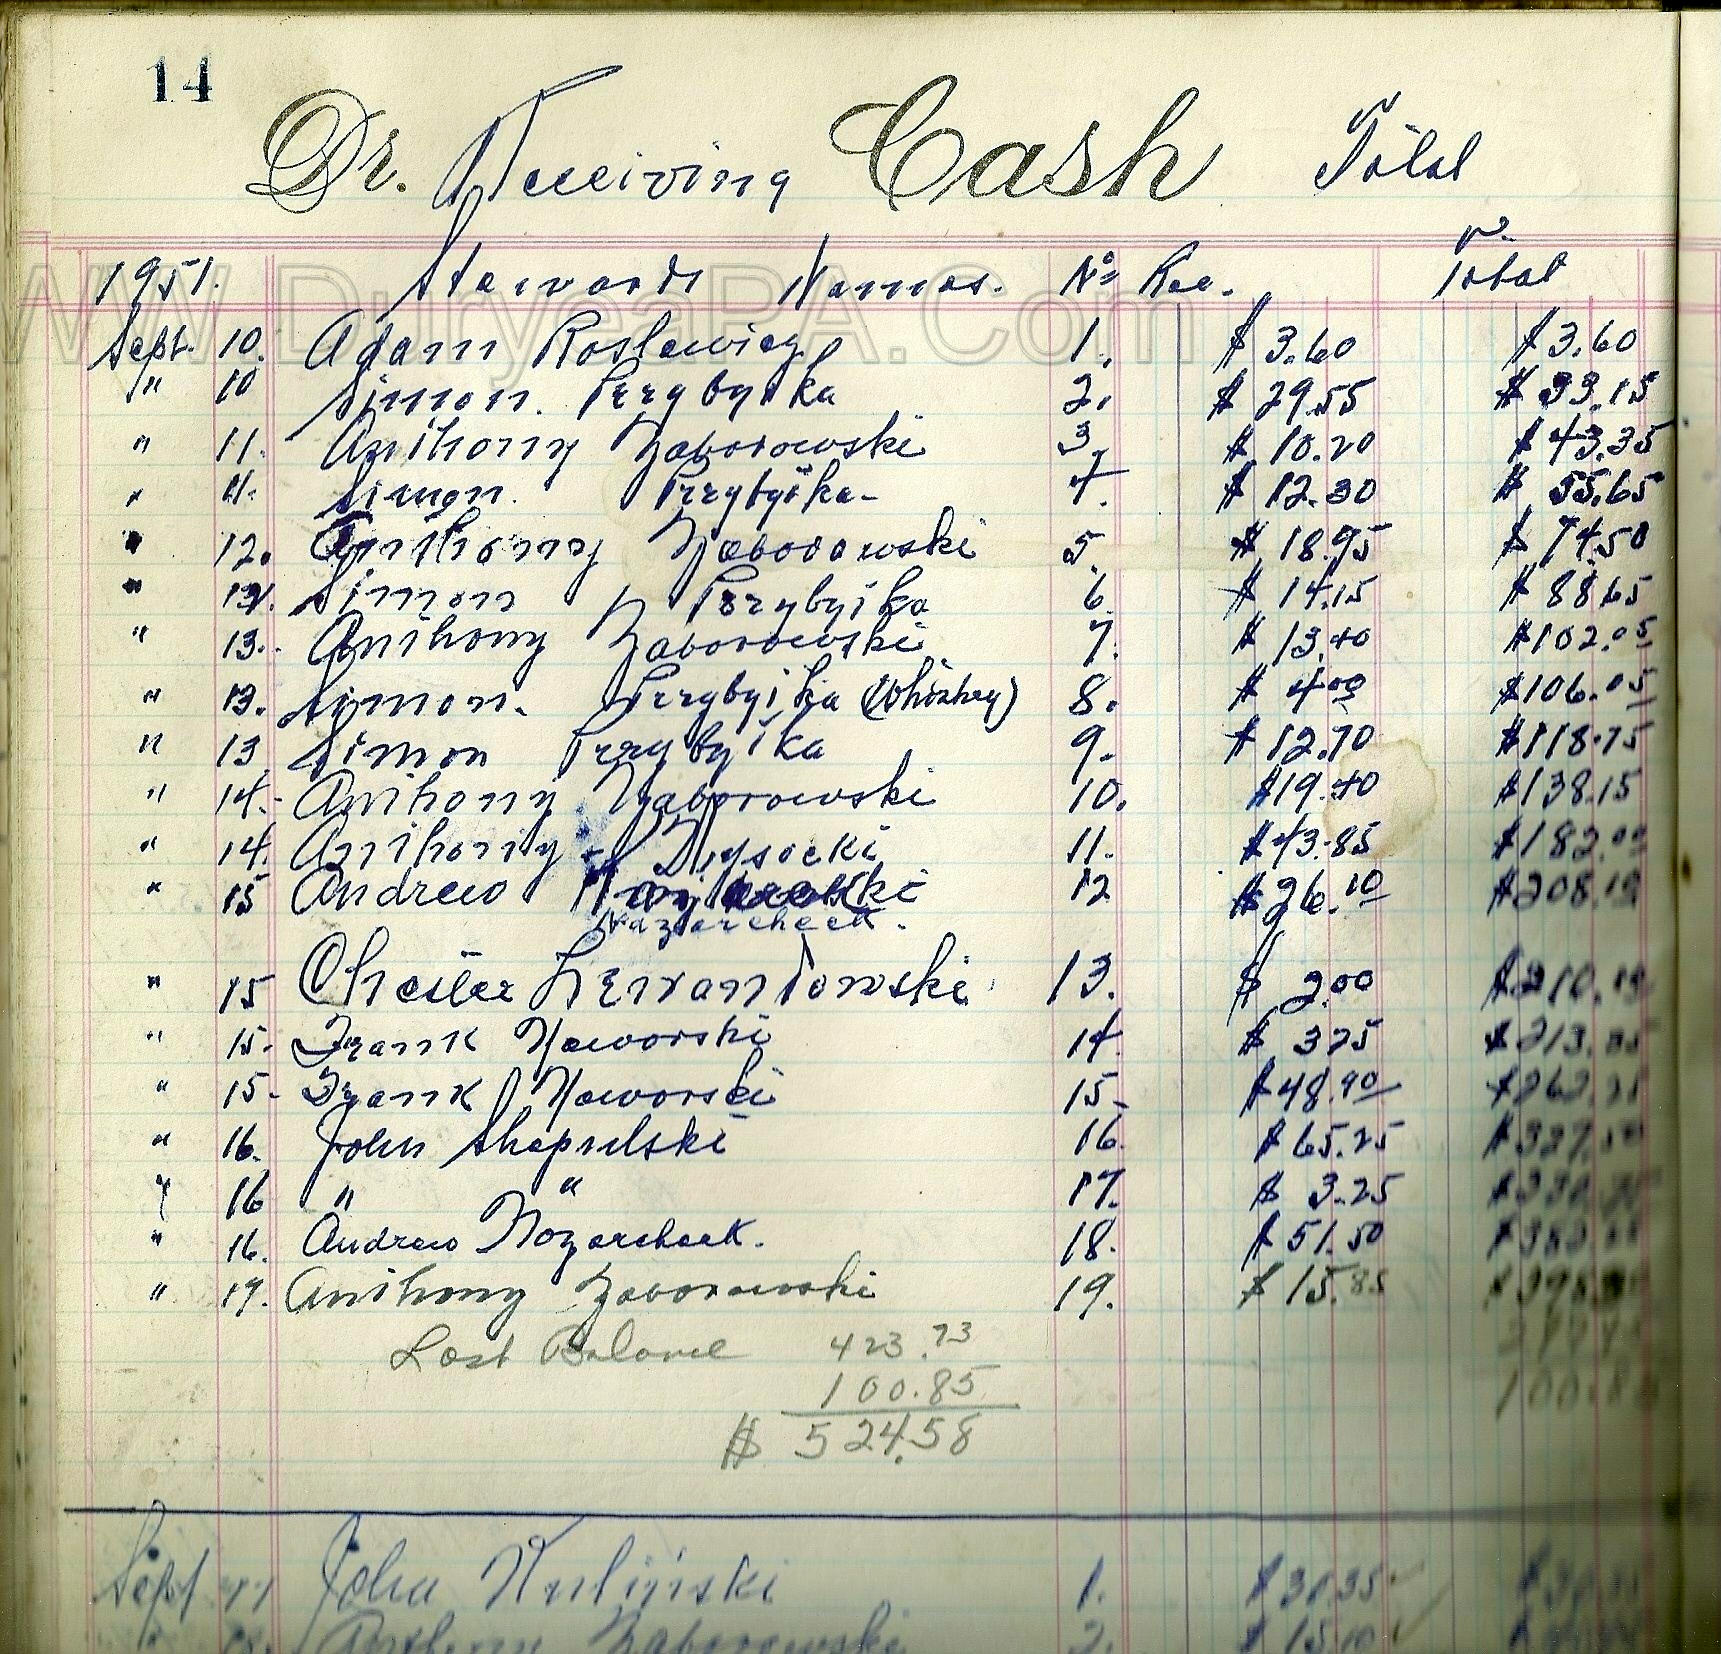 14
Dr. Receiving Cash Total
1951. Stewards Names. No Rec. Total
www.DuryeaPA.Com
Sept. 10. Adam Roslewicz 1. $ 3.60 $ 3.60
" 10 Simon. Przybyika 2. $ 29.55 $ 33.15
" 11. Anthony Zaborowski 3. $ 10.20 $ 43.35
" 11. Simon. Przybyika 4. $ 12.30 $ 55.65
" 12. Anthony Zaborowski 5. $ 18.95 $ 74.50
" 12. Simon Przybyika 6. $ 14.15 $ 88.65
" 13. Anthony Zaborowski 7. $ 13.40 $ 102.05
" 13. Simon. Przybyika (Whiskey) 8. $ 4.00 $ 106.05
" 13 Simon Przybyika 9. $ 12.70 $ 118.75
" 14. Anthony Zaborowski 10. $ 19.40 $ 138.15
" 14. Anthony Dysocki 11. $ 43.85 $ 182.00
" 15 Andrew 12 $ 26.10 $ 208.10
Nazarcheck.
" 15 Chester Lewandowski 13. $ 2.00 $ 210.10
" 15. Frank Naworski 14. $ 3.75 $ 213.85
" 15. Frank Naworski 15. $ 48.40 $ 262.25
" 16. John Shepulski 16. $ 65.25 $ 327.50
" 16 " " 17. $ 3.25 $ 330.75
" 16. Andrew Nozarcheck. 18. $ 51.50 $ 382.25
" 17. Anthony Zaborowski 19. $ 15.85 $ 398
Last Balance 423.73
100.85 100.8
$ 524.58
Sept. John Kulinski 1. $ 30.35
Anthony Zaborowski 2. $ 15.10